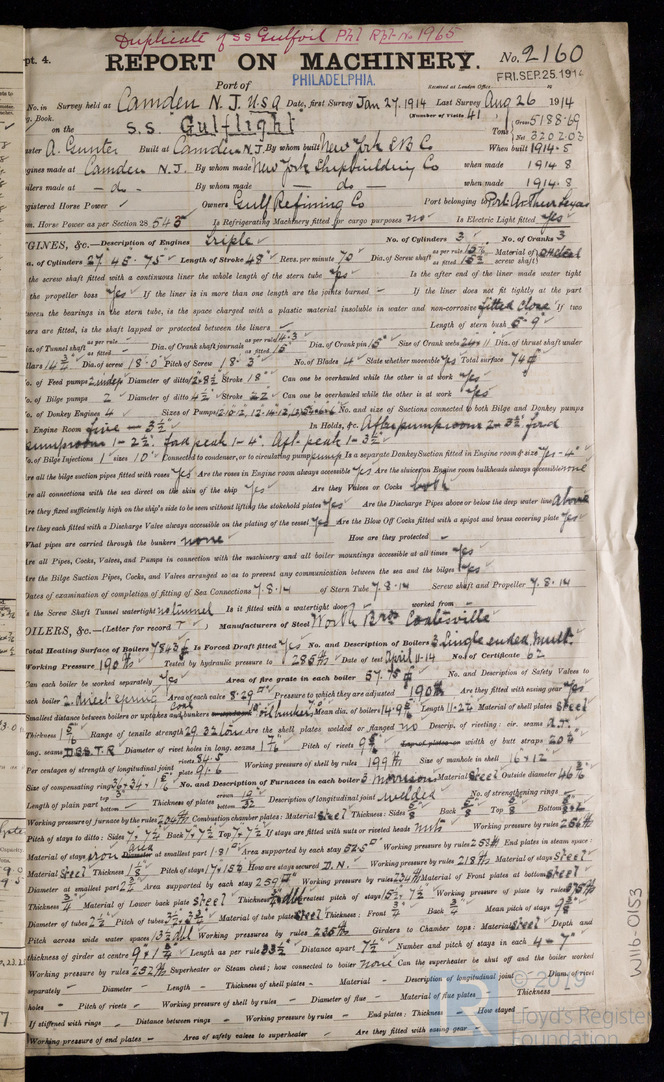 Duplicate of SS Gulfoil Phl Rpt No 1965
pt. 4.
REPORT ON MACHINERY.
No. 2160
Port of PHILADELPHIA.
Received at London Office
FRI. SEP. 25. 1914
No. in Survey held at Camden N.J. USA Date, first Survey Jan 27. 1914 Last Survey Aug 26 1914
g. Book.
(Number of Visits 41)
on the S.S. "Gulflight"
Tons Gross 5188.69
Net 3202.03
aster A. Gunter Built at Camden N.J. By whom built New York S.B. Co When built 1914-5
ngines made at Camden N.J. By whom made New York Shipbuilding Co when made 1914.8
oilers made at - do - By whom made - do - when made 1914.8
egistered Horse Power Owners Gulf Refining Co Port belonging to Port Arthur Texas
om. Horse Power as per Section 28 545 Is Refrigerating Machinery fitted for cargo purposes no Is Electric Light fitted Yes
GINES, &c.—Description of Engines Triple No. of Cylinders 3 No. of Cranks 3
a. of Cylinders 27. 45. 75" Length of Stroke 48" Revs. per minute 70 Dia. of Screw shaft as per rule as fitted 15½ Material of screw shaft steel
the screw shaft fitted with a continuous liner the whole length of the stern tube Yes Is the after end of the liner made water tight
the propeller boss Yes If the liner is in more than one length are the joints burned - If the liner does not fit tightly at the part
ween the bearings in the stern tube, is the space charged with a plastic material insoluble in water and non-corrosive fitted close If two
ners are fitted, is the shaft lapped or protected between the liners - Length of stern bush 5'-9"
ia. of Tunnel shaft as per rule as fitted - Dia. of Crank shaft journals as per rule 14.3 as fitted 15 Dia. of Crank pin 15" Size of Crank webs Dia. of thrust shaft under
llars 14¾ Dia. of screw 18'-0" Pitch of Screw 18'-3" No. of Blades 4 State whether moveable yes Total surface 74
o. of Feed pumps 2 indep Diameter of ditto Stroke 18" Can one be overhauled while the other is at work Yes
o. of Bilge pumps 2 Diameter of ditto 4½ Stroke 22 Can one be overhauled while the other is at work Yes
o. of Donkey Engines 4 Sizes of Pumps No. and size of Suctions connected to both Bilge and Donkey pumps
Engine Room five - 3½" In Holds, &c. After pumproom 2-3½" ford
pumproom 1-2½" ford peak 1-4" Aft. peak 1-3½"
o. of Bilge Injections 1 sizes 10" Connected to condenser, or to circulating pump pump Is a separate Donkey Suction fitted in Engine room & size Yes-4"
re all the bilge suction pipes fitted with roses Yes Are the roses in Engine room always accessible Yes Are the sluices on Engine room bulkheads always accessible none
re all connections with the sea direct on the skin of the ship Yes Are they Valves or Cocks both
re they fixed sufficiently high on the ship's side to be seen without lifting the stokehold plates Yes Are the Discharge Pipes above or below the deep water line above
re they each fitted with a Discharge Valve always accessible on the plating of the vessel Yes Are the Blow Off Cocks fitted with a spigot and brass covering plate Yes
What pipes are carried through the bunkers none How are they protected -
re all Pipes, Cocks, Valves, and Pumps in connection with the machinery and all boiler mountings accessible at all times Yes
re the Bilge Suction Pipes, Cocks, and Valves arranged so as to prevent any communication between the sea and the bilges Yes
Dates of examination of completion of fitting of Sea Connections 7.8.14 of Stern Tube 7.8.14 Screw shaft and Propeller 7.8.14
s the Screw Shaft Tunnel watertight no tunnel Is it fitted with a watertight door worked from -
OILERS, &c.—(Letter for record r) Manufacturers of Steel Worth Bros Coatesville
Total Heating Surface of Boilers 7843 Is Forced Draft fitted Yes No. and Description of Boilers 3 Single ended mult.
Working Pressure 190 lb Tested by hydraulic pressure to 285 lb Date of test April 11-14 No. of Certificate 62
Can each boiler be worked separately Yes Area of fire grate in each boiler 57.75 No. and Description of Safety Valves to
each boiler 2 direct spring Area of each valve 8.29 Pressure to which they are adjusted 190 lb Are they fitted with easing gear Yes
Smallest distance between boilers or uptakes and bunkers oil bunker Mean dia. of boilers Length 11-2¼ Material of shell plates Steel
Thickness Range of tensile strength 29.32 tons Are the shell plates welded or flanged no Descrip. of riveting: cir. seams D.T.
long. seams DBS.T.R Diameter of rivet holes in long. seams Pitch of rivets width of butt straps
Per centages of strength of longitudinal joint rivets 84.5 plate 91.6 Working pressure of shell by rules 199 lb Size of manhole in shell 16 x 12
Size of compensating ring No. and Description of Furnaces in each boiler 3 Morrison Material Steel Outside diameter
Length of plain part top bottom Thickness of plates crown bottom Description of longitudinal joint welded No. of strengthening rings -
Working pressure of furnace by the rules 204 lb Combustion chamber plates: Material Steel Thickness: Sides 5/8 Back 5/8 Top 5/8 Bottom
Pitch of stays to ditto: Sides 7 x 7½ Back 7 x 7½ Top 7 x 7½ If stays are fitted with nuts or riveted heads nuts Working pressure by rules 256 lb
Material of stays iron area at smallest part 1.81 Area supported by each stay 52.5 Working pressure by rules 258 lb End plates in steam space:
Material Steel Thickness 1 1/8 Pitch of stays 17 x 15½ How are stays secured D.N. Working pressure by rules 218 lb Material of stays Steel
Diameter at smallest part Area supported by each stay 259 Working pressure by rules 234 lb Material of Front plates at bottom Steel
Thickness ¾ Material of Lower back plate Steel Thickness Greatest pitch of stays 15½ x 7½ Working pressure of plate by rules
Diameter of tubes 2½ Pitch of tubes Material of tube plates Steel Thickness: Front ¾ Back ¾ Mean pitch of stays
Pitch across wide water spaces 13½ dbl Working pressures by rules 235 lb Girders to Chamber tops: Material Steel Depth and
thickness of girder at centre Length as per rule 33½ Distance apart 7½ Number and pitch of stays in each 4-7"
Working pressure by rules 252 lb Superheater or Steam chest; how connected to boiler none Can the superheater be shut off and the boiler worked
separately - Diameter - Length - Thickness of shell plates - Material - Description of longitudinal joint Diam. of rivet
holes - Pitch of rivets - Working pressure of shell by rules - Diameter of flue - Material of flue plates Thickness
If stiffened with rings - Distance between rings - Working pressure by rules - End plates: Thickness - How stayed
Working pressure of end plates - Area of safety valves to superheater - Are they fitted with easing gear -
W116-0153
© 2019
Lloyd's Register
Foundation